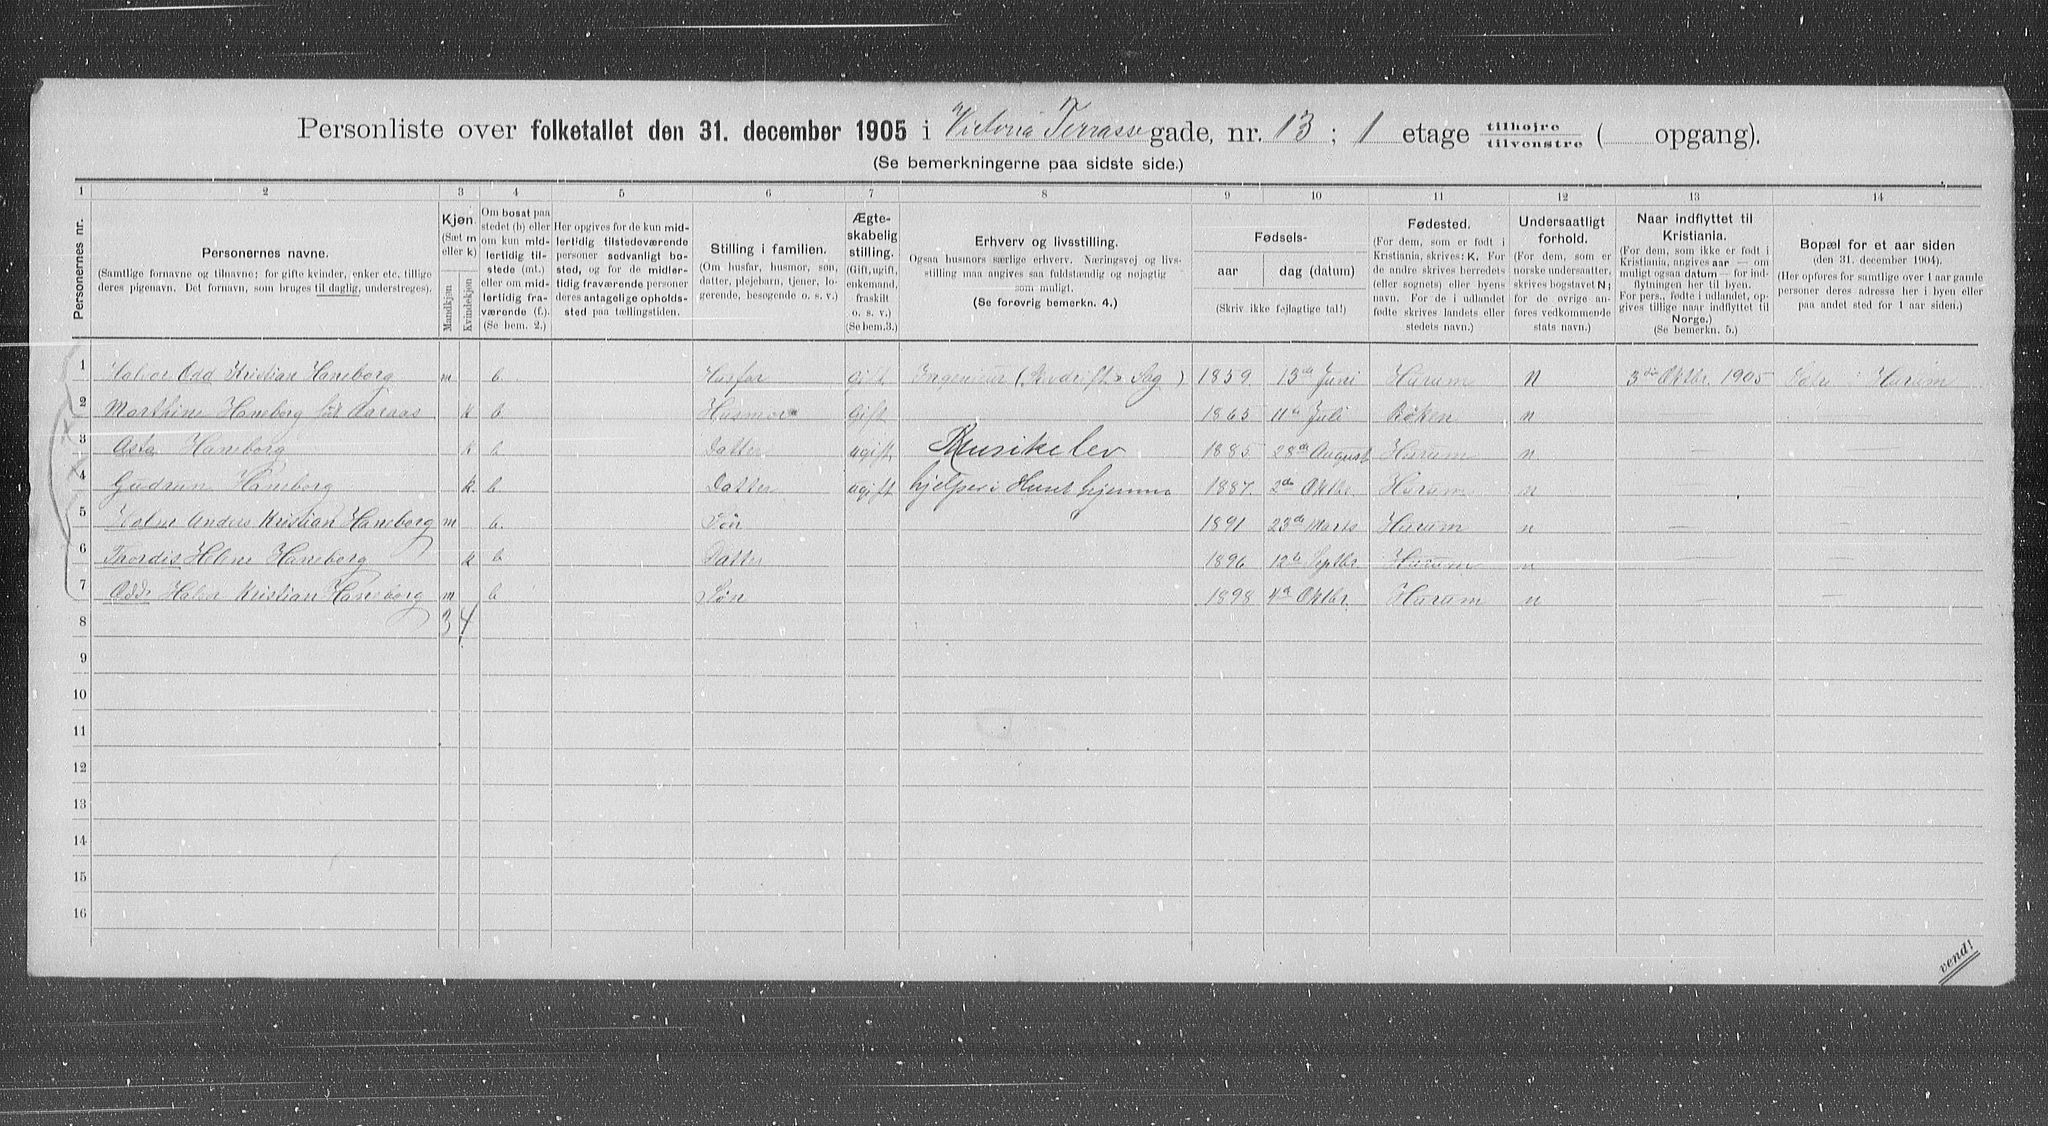 Personliste over folketallet den 31. december 1905 i Victoria Terrasse gade, nr. 13; 1 etage tilhøjre tilvenstre ( opgang).
(Se bemerkningerne paa sidste side.)
1 2 3 4 5 6 7 8 9 10 11 12 13 14
Personernes nr.
Personernes navne.
(Samtlige fornavne og tilnavne; for gifte kvinder, enker etc. tillige
deres pigenavn. Det fornavn, som bruges til daglig, understreges).
Kjøn.
(Sæt m
eller k)
Mandkjøn
Kvindekjøn
Om bosat paa
stedet (b) eller
om kun mid-
lertidig til-
stede (mt.)
eller om mid-
lertidig fra-
værende (f.).
(Se bem. 2.)
Her opgives for de kun mid-
lertidig tilstedeværende
personer sedvanlig bo-
sted, og for de midler-
tidig fraværende personer
deres antagelige opholds-
sted paa tællingstiden.
Stilling i familien.
(Om husfar, husmor, søn,
datter, plejebarn, tjener, lo-
gerende, besøgende o. s. v.)
Ægte-
skabelig
stilling.
(Gift, ugift,
enkemand,
fraskilt
o. s. v.)
(Se bem.3.)
Erhverv og livsstilling.
Ogsaa husmors særlige erhverv. Næringsvej og livs-
stilling maa angives saa fuldstændig og nøjagtig
som muligt.
(Se forøvrig bemerkn. 4.)
Fødsels-
aar
dag (datum)
(Skriv ikke fejlagtige tal!)
Fødested.
(For dem, som er født i
Kristiania, skrives: K. For
de andre skrives herredets
(eller sognets) eller byens
navn. For de i udlandet
fødte skrives landets eller
stedets navn.)
Undersaatligt
forhold.
(For dem, som er
norske undersaatter,
skrives bogstavet N;
for de øvrige an-
føres vedkommende
stats navn.)
Naar indflyttet til
Kristiania.
(For dem, som ikke er født i
Kristiania, angives aar — om
muligt ogsaa datum — for ind-
flytningen her til byen.
For pers., fødte i udlandet, op-
gives tillige naar indflyttet til
Norge.)
(Se bemerkn. 5.)
Bopæl for et aar siden
(den 31. december 1904).
(Her opføres for samtlige over 1 aar gamle
personer deres adresse her i byen eller
paa andet sted for 1 aar siden.)
1 Halvor Odd Kristian Haneborg m b. Husfar Gift Ingeniør ( Sag ) 1859 13de Juni Hurum N 3die Oktbr. 1905 i Hurum
2 Marthine Haneborg født Aaraas k b. Husmor Gift 1865 11te Juli Røken n
3 Asta Haneborg k b Datter ugift Musikelev 1885 28de August Hurum n — —
4 Gudrun Haneborg k. b Datter ugift hjelper i Huset hjemme 1887. 2de Oktbr. Hurum n — —
5 Halvor Anders Kristian Haneborg m b. Søn 1891 23de Marts Hurum n — —
6 Thordis Helene Haneborg k b Datter 1896 12te Septbr. Hurum n — —
7 Odd Halvor Kristian Haneborg m b Søn 1898 4de Oktbr. Hurum n — —
8 3 4
9
10
11
12
13
14
15
16
vend!